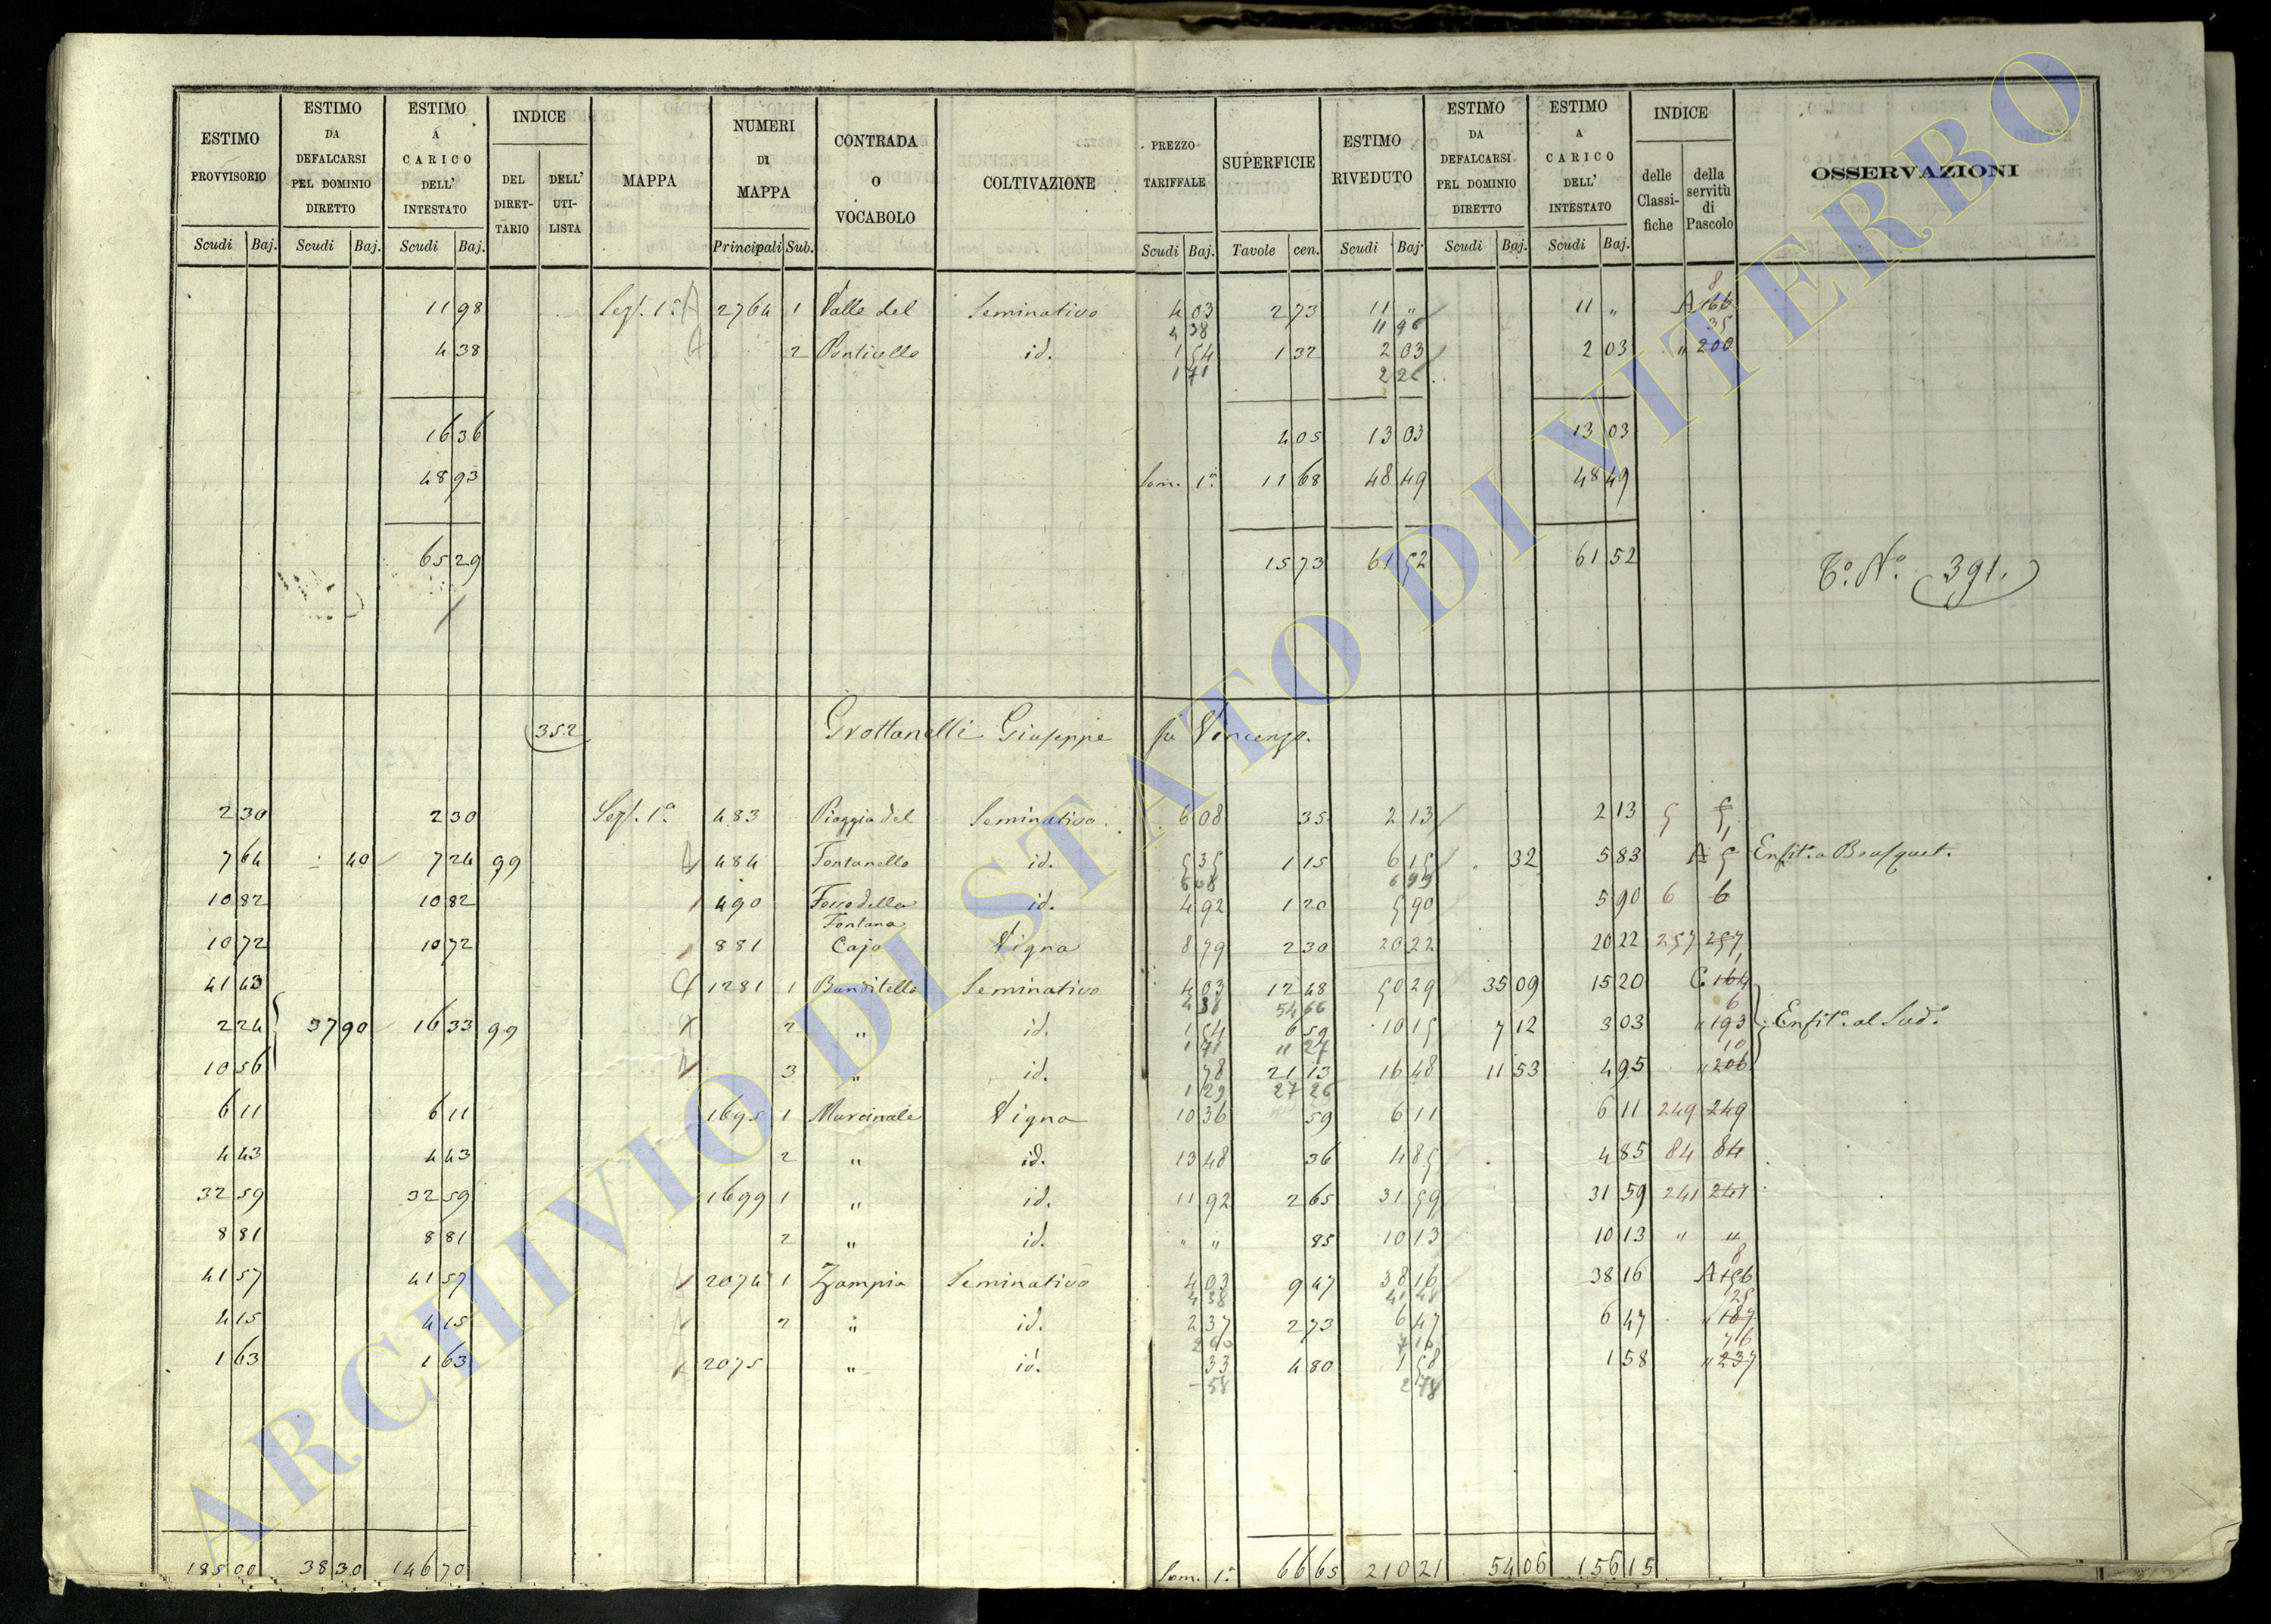 ESTIMO PROVVISORIO | ESTIMO DA DEFALCARSI PEL DOMINIO DIRETTO | ESTIMO A CARICO DELL' INTESTATO | INDICE DEL DIRETTARIO | DELL' UTILISTA | MAPPA | NUMERI DI MAPPA | CONTRADA O VOCABOLO | COLTIVAZIONE | PREZZO TARIFFALE | SUPERFICIE | ESTIMO RIVEDUTO | ESTIMO DA DEFALCARSI PEL DOMINIO DIRETTO | ESTIMO A CARICO DELL' INTESTATO | INDICE delle Classifiche | della servitù di Pascolo | OSSERVAZIONI
Scudi Baj. Scudi Baj. Scudi Baj. Principali Sub. Scudi Baj. Tavole cen. Scudi Baj. Scudi Baj. Scudi Baj.
8
11 98 Sez. 1ª A 2764 1 Valle del Seminativo 4 03 2 73 11 " 11 " A 166
4 38 11 96 35
4 38 A 2 Ponticello id. 1 54 1 32 2 03 2 03 " 200
1 71 2 26
16 36 4 05 13 03 13 03
48 93 Som. 1ª 11 68 48 49 48 49
65 29 15 73 61 52 61 52
Cº. Nº. 391.
352 Grottanelli Giuseppe fu Vincenzo.
2 30 2 30 Sez. 1ª 483 Piaggia del Seminativo 6 08 35 2 13 2 13 5 5
1
7 64 40 7 24 99 A 484 Fontanello id. 5 35 1 15 6 15 32 5 83 A 5 Enfit. a Bousquet.
6 08 6 99
10 82 10 82 490 Fosso della Fontana id. 4 92 1 20 5 90 5 90 6 6
10 72 10 72 881 Cajo Vigna 8 79 2 30 20 22 20 22 257 257
1
41 43 1281 1 Banditella Seminativo 4 03 12 48 50 29 35 09 15 20 C 164
4 38 54 66 6
2 24 37 90 16 33 99 2 " id. 1 54 6 59 10 15 7 12 3 03 " 193 Enfit. al Sudº
1 71 11 27 10
10 56 3 " id. 78 21 13 16 48 11 53 4 95 " 206
1 29 27 26
6 11 6 11 1695 1 Marcinale Vigna 10 36 59 6 11 6 11 249 249
4 43 4 43 2 " id. 13 48 36 4 85 4 85 84 84
32 59 32 59 1699 1 " id. 11 92 2 65 31 59 31 59 241 241
8 81 8 81 2 " id. " " 85 10 13 10 13 " "
8
41 57 41 57 2074 1 Zampia Seminativo 4 03 9 47 38 16 38 16 A 156
4 38 41 48 25
4 15 4 15 2 " id. 2 37 2 73 6 47 6 47 " 187
76
1 63 1 63 2075 " id. 33 4 80 1 58 1 58 " 237
58 2 78
185 00 38 30 146 70 Som. 1ª 66 65 210 21 54 06 156 15
ARCHIVIO DI STATO DI VITERBO